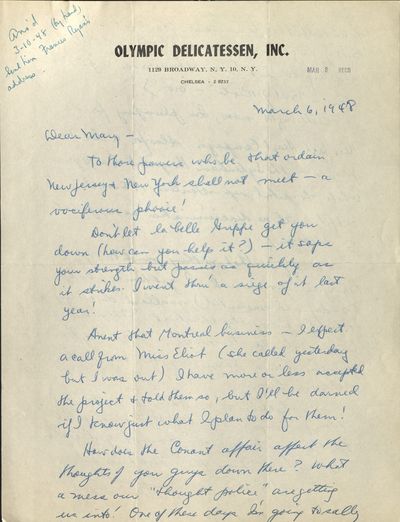 Ans'd
3-10-48 (by hand,
sent him Frances
address.
OLYMPIC DELICATESSEN, INC.
1129 BROADWAY, N. Y. 10, N. Y.
CHELSEA - 2 9237
MAR 8 REC'D
March 6, 1948
Dear Mary -
To those powers who be that ordain
New Jersey & New York shall not meet - a
vociferous phooie!
Don't let la belle Grippe get you
down (how can you help it?) - it saps
your strength but passes as quickly as
it strikes. I went thru' a siege of it last
year!
Anent that Montreal business - I expect
a call from Miss Eliot (she called yesterday
but I was out) I have more or less accepted
the project & told them so, but I'll be darned
if I know just what I plan to do for them!
How does the Conant affair affect the
thoughts of you guys down there? What
a mess our "thought police" are getting
us into! One of these days I'm going to sally